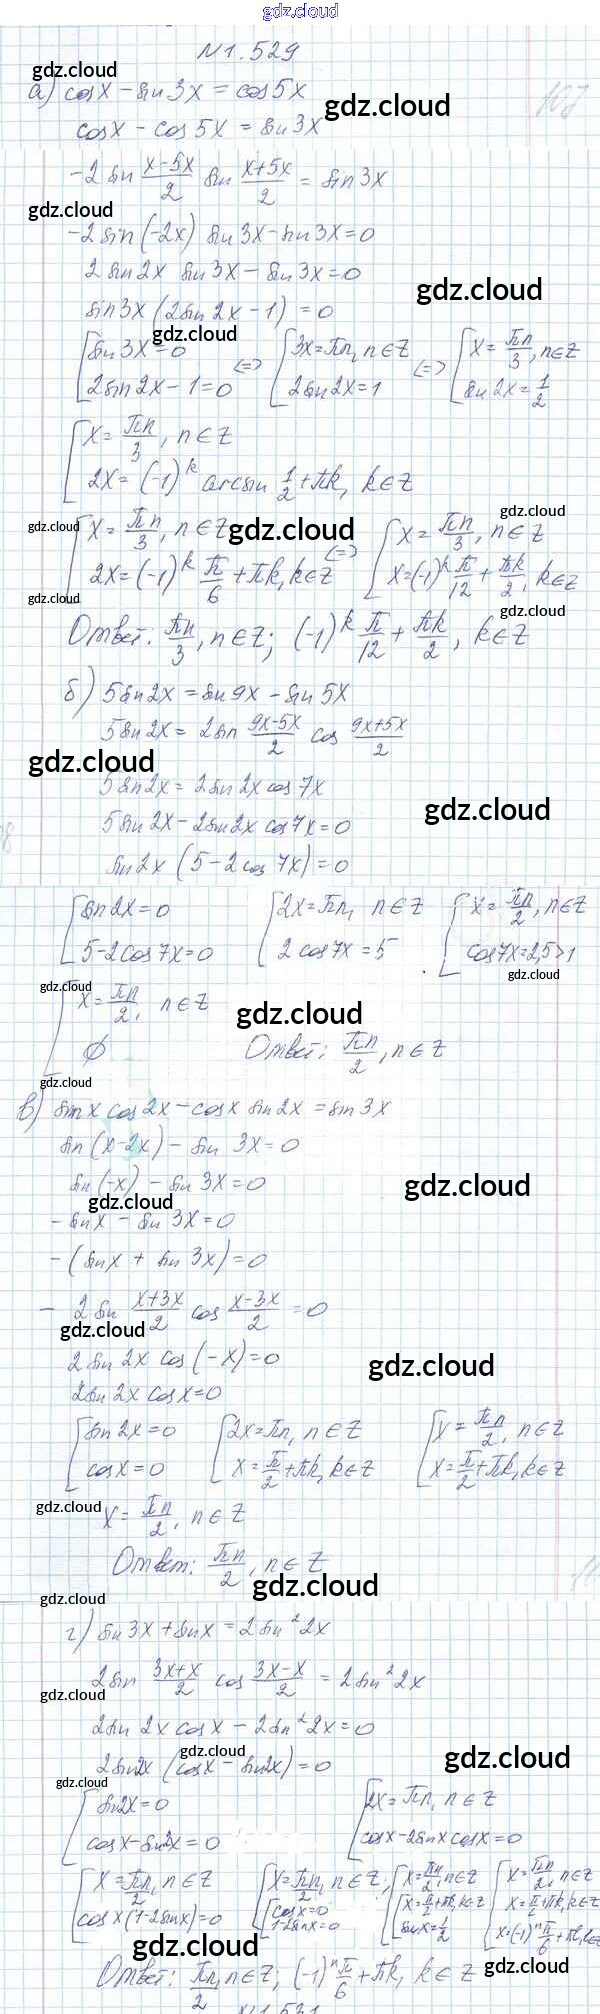 gdz.cloud
N 1.529
gdz.cloud
а) cosx - sin3x = cos5x
gdz.cloud
cosx - cos5x = sin3x
-2 sin (x-5x)/2 sin (x+5x)/2 = sin3x
gdz.cloud
-2 sin(-2x) sin3x - sin3x = 0
2 sin2x sin3x - sin3x = 0
gdz.cloud
sin3x (2sin2x - 1) = 0
gdz.cloud
[ sin3x = 0 <=> [ 3x = πn, n∈Z <=> [ x = πn/3, n∈Z
2sin2x - 1 = 0 2sin2x = 1 sin2x = 1/2
[ x = πn/3, n∈Z
2x = (-1)^k arcsin 1/2 + πk, k∈Z
gdz.cloud
gdz.cloud gdz.cloud
[ x = πn/3, n∈Z <=> [ x = πn/3, n∈Z
2x = (-1)^k π/6 + πk, k∈Z x = (-1)^k π/12 + πk/2, k∈Z
gdz.cloud
gdz.cloud
Ответ: πn/3, n∈Z; (-1)^k π/12 + πk/2, k∈Z
б) 5sin2x = sin9x - sin5x
5sin2x = 2sin (9x-5x)/2 cos (9x+5x)/2
gdz.cloud
5sin2x = 2sin2x cos7x
gdz.cloud
5sin2x - 2sin2x cos7x = 0
sin2x (5 - 2cos7x) = 0
[ sin2x = 0 [ 2x = πn, n∈Z [ x = πn/2, n∈Z
5 - 2cos7x = 0 2cos7x = 5 cos7x = 2,5 > 1
gdz.cloud
gdz.cloud
[ x = πn/2, n∈Z
gdz.cloud
∅ Ответ: πn/2, n∈Z
gdz.cloud
в) sinx cos2x - cosx sin2x = sin3x
sin(x-2x) - sin3x = 0
sin(-x) - sin3x = 0
gdz.cloud
gdz.cloud
-sinx - sin3x = 0
-(sinx + sin3x) = 0
- 2sin (x+3x)/2 cos (x-3x)/2 = 0
gdz.cloud
2sin2x cos(-x) = 0
gdz.cloud
2sin2x cosx = 0
[ sin2x = 0 [ 2x = πn, n∈Z [ x = πn/2, n∈Z
cosx = 0 x = π/2 + πk, k∈Z x = π/2 + πk, k∈Z
gdz.cloud
x = πn/2, n∈Z
Ответ: πn/2, n∈Z
gdz.cloud
gdz.cloud
г) sin3x + sinx = 2sin²2x
2sin (3x+x)/2 cos (3x-x)/2 = 2sin²2x
gdz.cloud
2sin2x cosx - 2sin²2x = 0
gdz.cloud
2sin2x (cosx - sin2x) = 0
gdz.cloud
gdz.cloud
[ sin2x = 0 [ 2x = πn, n∈Z
cosx - sin2x = 0 cosx - 2sinx cosx = 0
[ x = πn/2, n∈Z [ x = πn/2, n∈Z; [ x = πn/2, n∈Z [ x = πn/2, n∈Z
cosx(1-2sinx) = 0 [ cosx = 0 [ x = π/2 + πk, k∈Z x = π/2 + πk, k∈Z
1-2sinx = 0 sinx = 1/2 x = (-1)^n π/6 + πk, k∈Z
gdz.cloud
gdz.cloud
Ответ: πn/2, n∈Z; (-1)^n π/6 + πk, k∈Z
gdz.cloud
N1.531